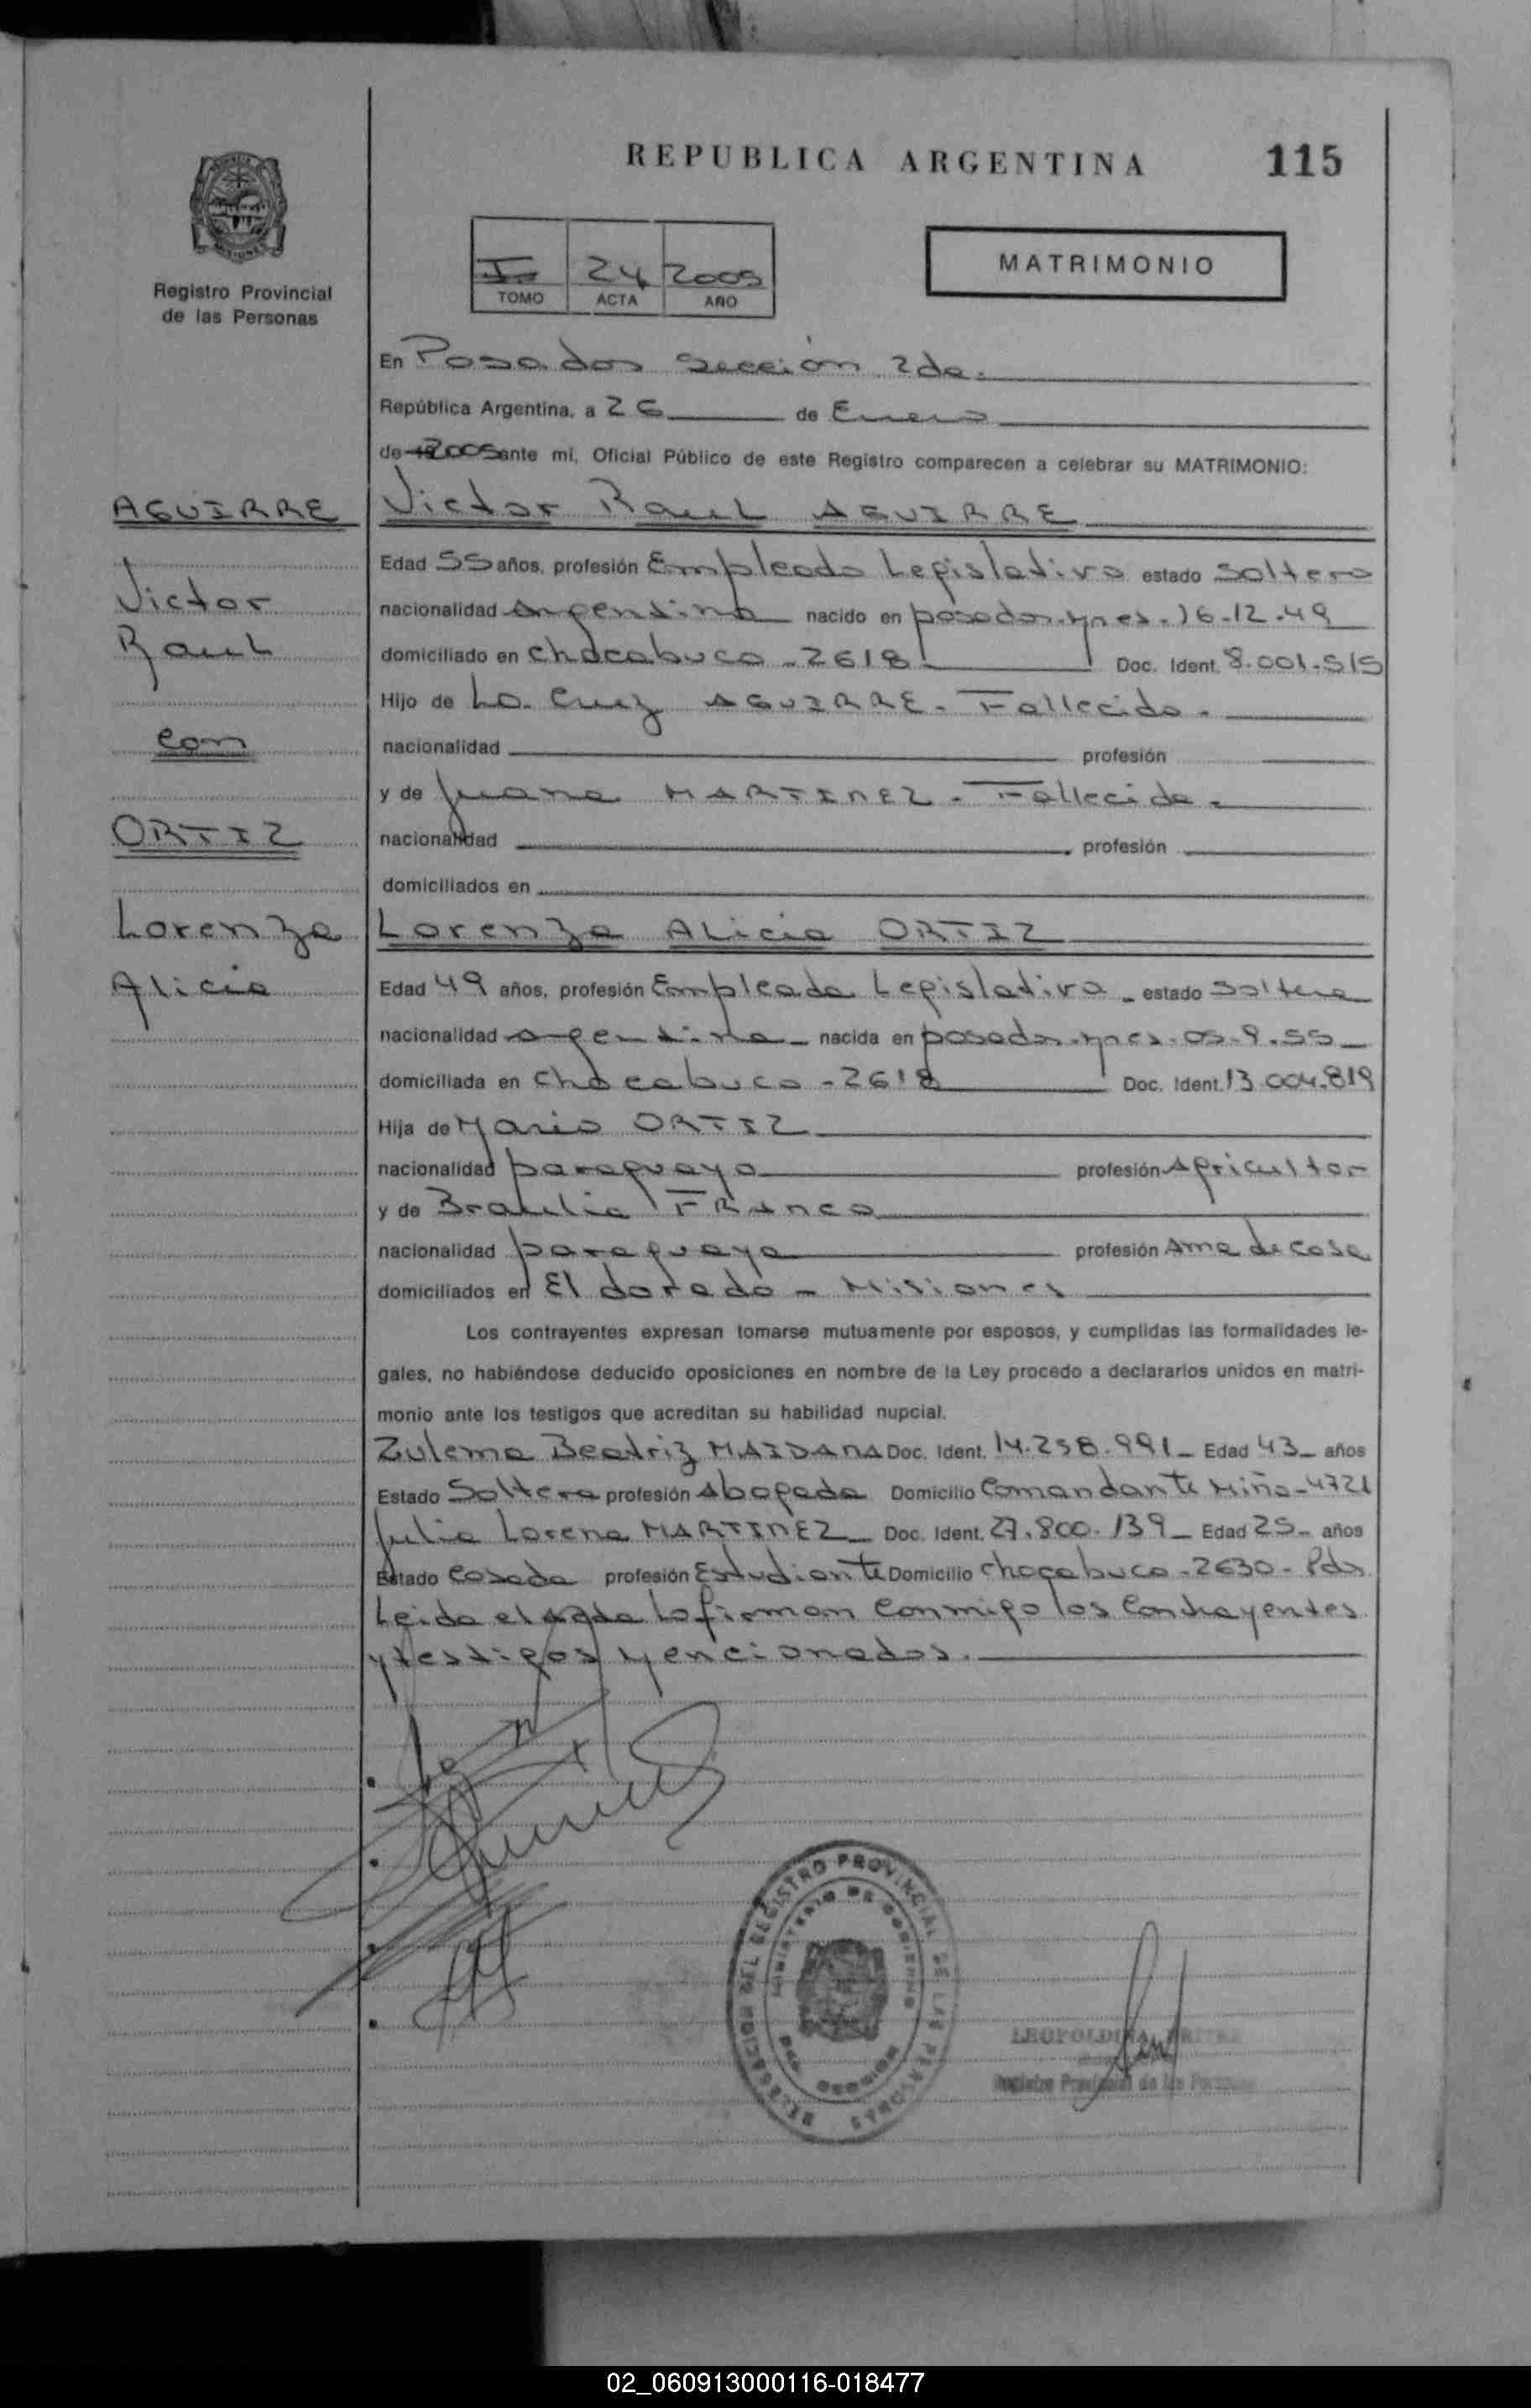 REPUBLICA ARGENTINA 115
Registro Provincial
de las Personas
I 24 2005
TOMO ACTA AÑO
MATRIMONIO
En Posadas Sección 2da.
República Argentina, a 26 de Enero
de 19 2005 ante mí, Oficial Público de este Registro comparecen a celebrar su MATRIMONIO:
AGUIRRE
Victor
Raul
con
ORTIZ
Lorenza
Alicia
Victor Raul AGUIRRE
Edad 55 años, profesión Empleado Legislativo estado Soltero
nacionalidad argentina nacido en posadas.mnes.16-12-49
domiciliado en chacabuco - 2618 Doc. Ident. 8.001.515
Hijo de La Cruz AGUIRRE - Fallecido.
nacionalidad profesión
y de Juana MARTINEZ - Fallecida.
nacionalidad profesión
domiciliados en
Lorenza Alicia ORTIZ
Edad 49 años, profesión Empleada Legislativa - estado Soltera
nacionalidad argentina - nacida en posadas.mnes.05-9.55
domiciliada en chacabuco - 2618 Doc. Ident. 13.004.819
Hija de Mario ORTIZ
nacionalidad paraguayo profesión Agricultor
y de Braulia FRANCO
nacionalidad paraguaya profesión Ama de casa
domiciliados en El dorado - Misiones
Los contrayentes expresan tomarse mutuamente por esposos, y cumplidas las formalidades le-
gales, no habiéndose deducido oposiciones en nombre de la Ley procedo a declararlos unidos en matri-
monio ante los testigos que acreditan su habilidad nupcial.
Zulema Beatriz MAIDANA Doc. Ident. 14.258.991 - Edad 43 - años
Estado Soltera profesión Abogada Domicilio Comandante Miño - 4721
Julia Lorena MARTINEZ - Doc. Ident. 27.800.139 - Edad 25 - años
Estado Casada profesión Estudiante Domicilio chacabuco - 2630 - Pdas
Leida el acta la firman conmigo los Contrayentes
y testigos Mencionados.
DELEGACION DEL REGISTRO PROVINCIAL DE LAS PERSONAS
MINISTERIO DE GOBIERNO
Registro Provincial de las Personas
02_060913000116-018477